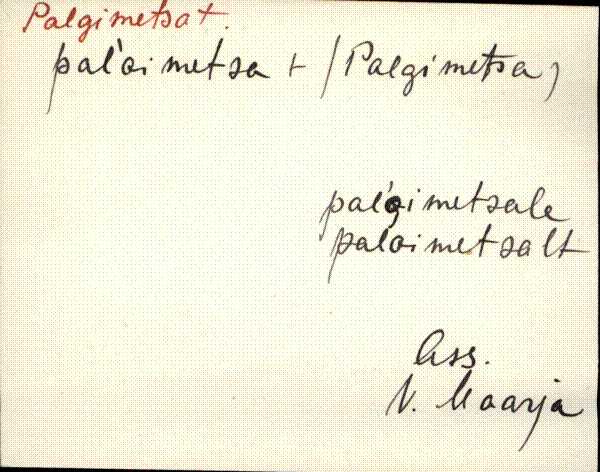 Palgimetsat.
pal'gi metsa t (Palgi metsa)
pal'gi metsale
palgi metsalt
Ass.
V. Maarja